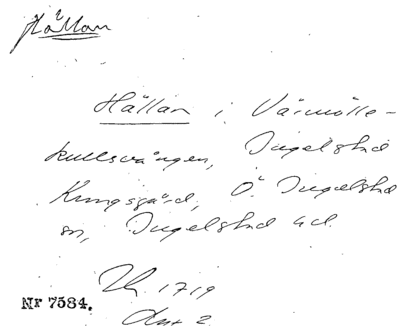 Hällan
Hällan i Värmölle-
kullsvången, Ingelstad
Kungsgård, Ö. Ingelstad
sn, Ingelstad hd.
1719
Nr 7584.
2